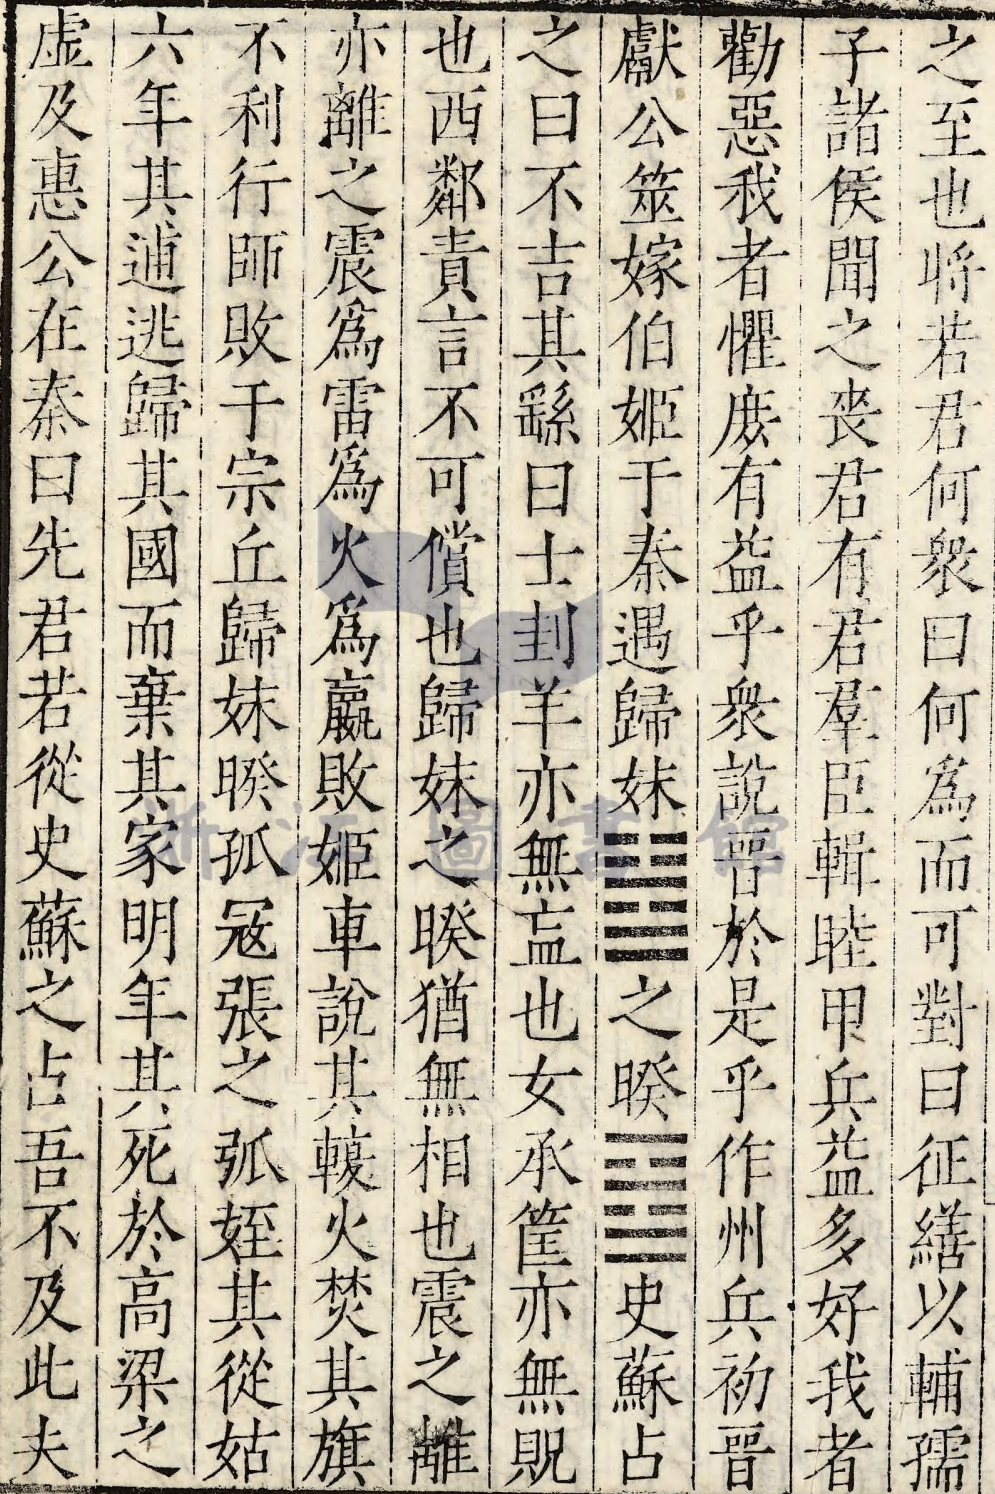 之至也將若君何衆曰何爲而可對曰征繕以輔孺
子諸侯聞之喪君有君羣臣輯睦甲兵益多好我者
勸惡我者懼庻有益乎衆說晉於是乎作州兵初晉
獻公筮嫁伯姬于秦遇歸妹䷵之睽䷥史蘇占
之曰不吉其繇曰士刲羊亦無衁也女承筐亦無貺
也西鄰責言不可償也歸妹之睽猶無相也震之離
亦離之震爲雷爲火爲嬴敗姬車說其輹火焚其旗
不利行師敗于宗丘歸妹睽孤冦張之弧姪其從姑
六年其逋逃歸其國而棄其家明年其死於高梁之
虛及惠公在秦曰先君若從史蘇之占吾不及此夫
浙江圖書館